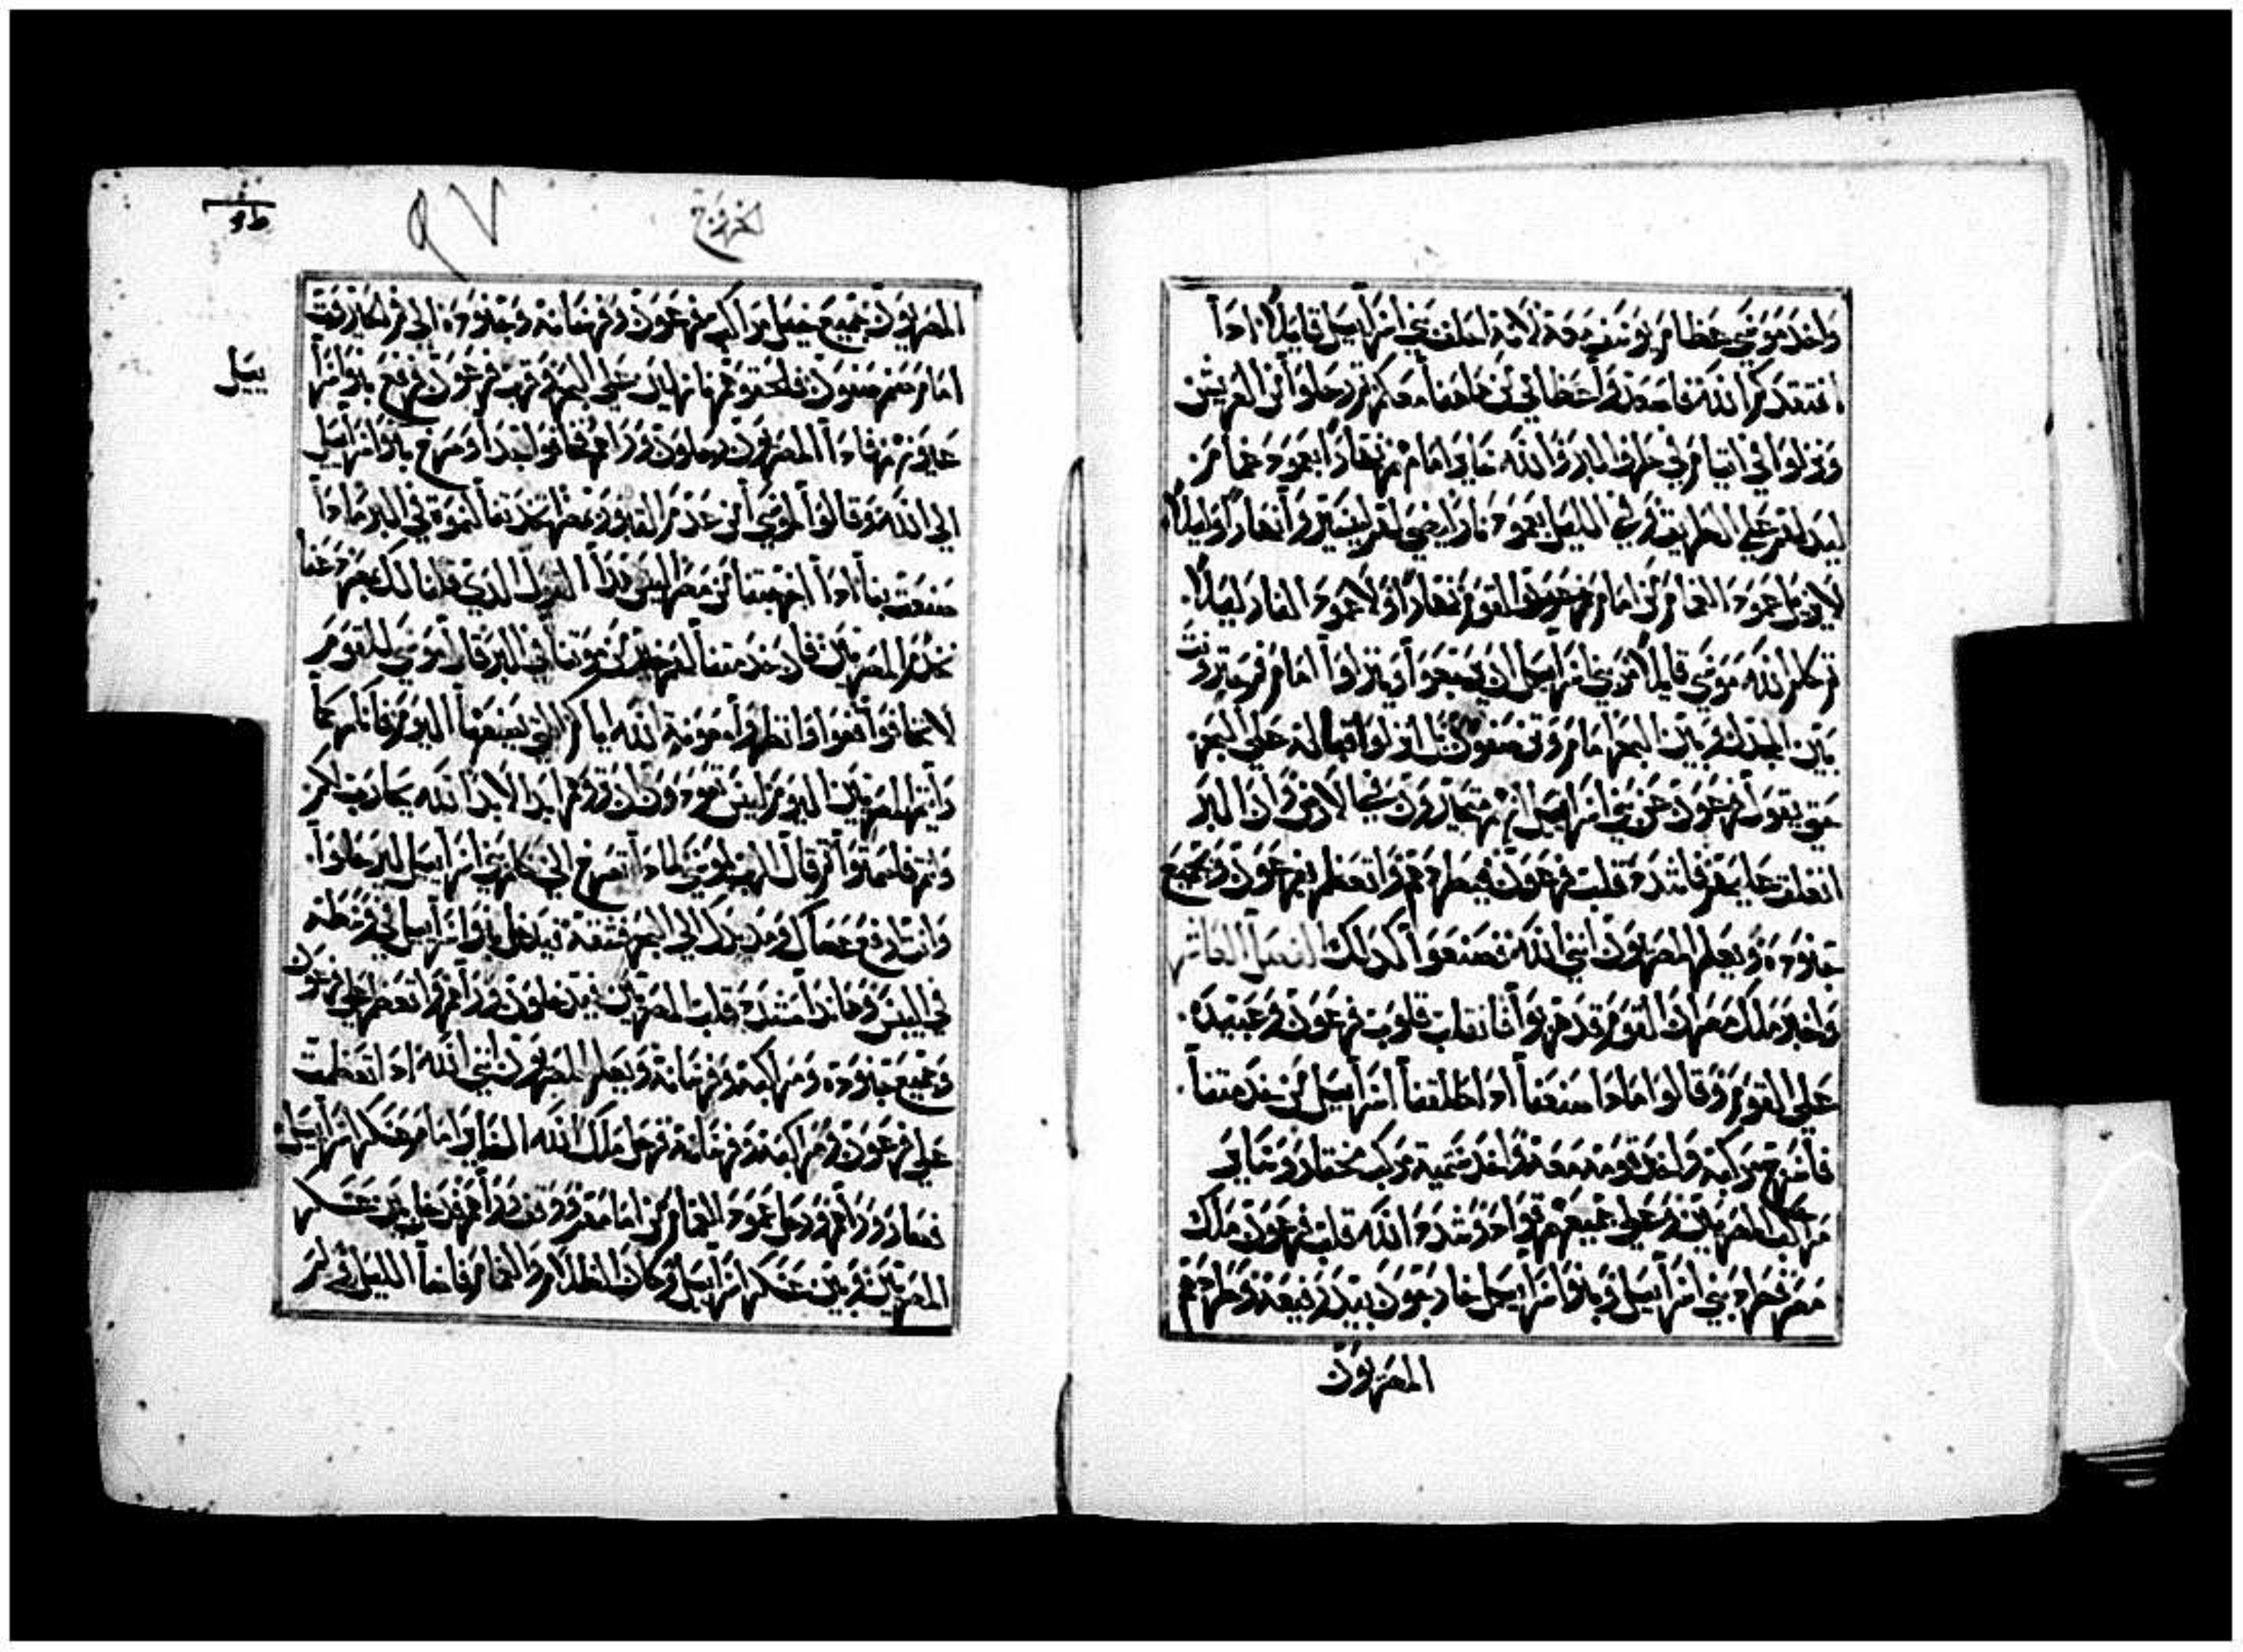 واخد موسي عظام يوسف معه لانه احلف بني اسراييل قايلا ادا
افتقدكم الله فاصعدوا عظامي من هاهنا معكم ثم رحلوا من العريش
ونزلوا في اتيام في طرف البر والله ساير امامهم نهارا بعمود غمام
ليدلهم علي الطريق وفي الليل بعمود نار ليضي لهم ليسيروا نهارا وليلا
لا يزول عمود الغمام من امام القوم نهارا ولا عمود النار ليلا
ثم كلم الله موسي قايلا مر بني اسراييل ان يرجعوا وينزلوا امام فم حيروت
بين المجدل وبين البحر امام وثن صفون انزلوا قباله علي البحر
حتي يقول فرعون عن بني اسراييل انهم متحيرون في الارض وان البر
انغلق عليهم فاشدد قلب فرعون فيطردهم واتعظم بفرعون وبجميع
جنوده ويعلم المصريون انني الله فصنعوا كدلك الفصل العاشر
واخبر ملك مصر ان القوم قد هربوا فانقلب قلوب فرعون وعبيده
علي القوم وقالوا مادا صنعنا اد اطلقنا اسراييل من خدمتنا
فاسرج مركبه واخد قومه معه واخد ستمية مركب مختار وساير
مراكب المصريين وعلي جميعهم قواد وشدد الله قلب فرعون ملك
مصر فطرد بني اسراييل وبنوا اسراييل خارجون بيد رفيعة وطردهم
المصريون
خروج
٩٧
المصريون بجميع خيل مراكب فرعون وفرسانه وجنوده الي فم الحيروت
امام صفون فلحقوهم نازلين علي البحر وقرب فرعون فرفع بنوا اسرا
ييل
عيونهم فادا المصريون راحلون وراهم فخافوا جدا وصرخ بنوا اسراييل
الي الله وقالوا لموسي امن عدم القبور بمصر اخدتنا لنموت في البر مادا
صنعت بنا ادا اخرجتنا من مصر اليس هدا القول الدي قلنا لك بمصر دعنا
نخدم المصريين فان خدمتنا لهم خير من موتنا في البر قال موسي للقوم
لا تخافوا قفوا وانظروا معونة الله اياكم التي يصنعها اليوم فانكم كما
رايتم المصريين اليوم ليس تعودون ترونهم ابدا الابد الله يحارب لكم
وانتم فاصمتوا ثم قال الرب لموسي لمادا تصرخ الي كلم بني اسراييل ليرحلوا
وانت ارفع عصاك ومد يدك الي البحر فشقه فيدخل بنوا اسراييل في وسطه
في اليبس وهاندا مشدد قلب المصريين فيدخلون وراهم واتعظم علي فرعون
وجميع جنوده ومراكبه وفرسانه ويعلم المصريون انني الله ادا تعظمت
علي فرعون ومراكبه وفرسانه فرحل ملاك الله الساير امام عسكر اسراييل
فصار وراهم ورحل عمود الغمام من امامهم ووقف وراهم فدخل بين عسكر
المصريين وبين عسكر اسراييل وكان الظلام والغمام فاضا الليل فلم